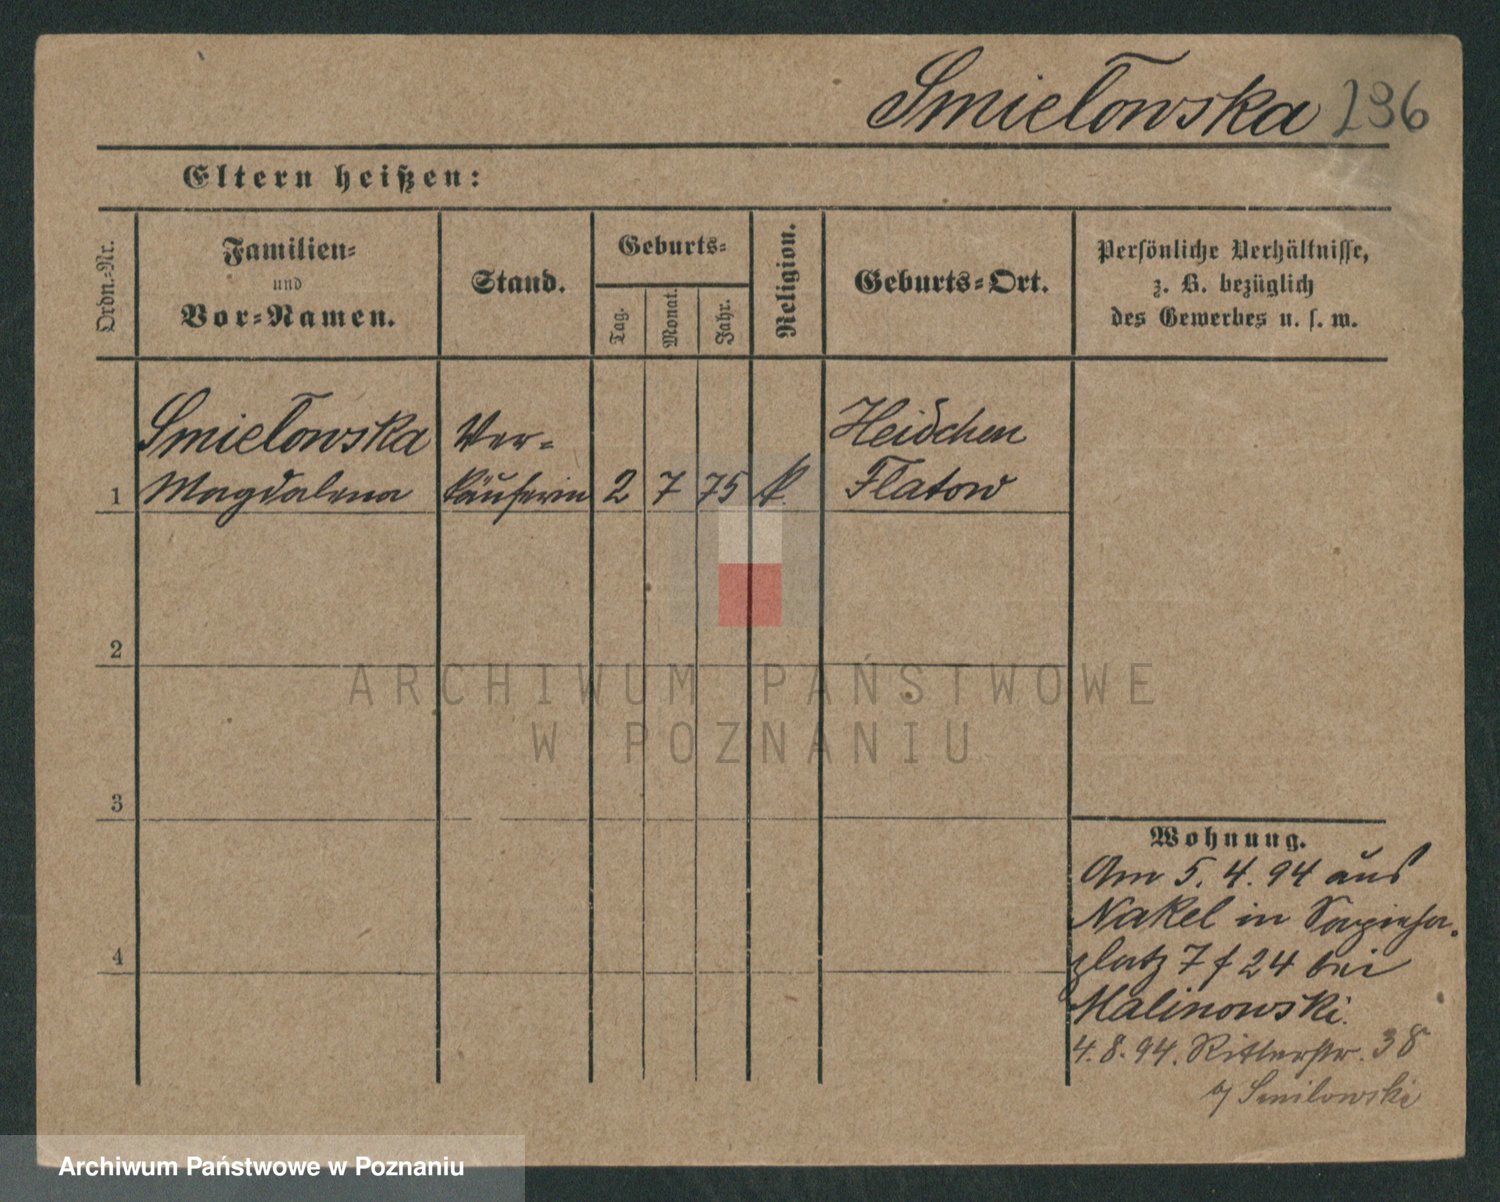 Smiełowska 236
Eltern heißen:
Ordn.-Nr.
Familien-
und
Vor-Namen.
Stand.
Geburts-
Tag.
Monat.
Jahr.
Religion.
Geburts-Ort.
Persönliche Verhältnisse,
z. B. bezüglich
des Gewerbes u. s. w.
Smiełowska Ver- Heidchen
1 Magdalena käuferin 2 7 75 k. Flatow
2
3
4
Wohnung.
Am 5. 4. 94 aus
Nakel in Sapieha-
platz 7 f 24 bei
Malinowski.
4. 8. 94. Ritterstr. 38
b/ Smilowski
ARCHIWUM PAŃSTWOWE
W POZNANIU
Archiwum Państwowe w Poznaniu